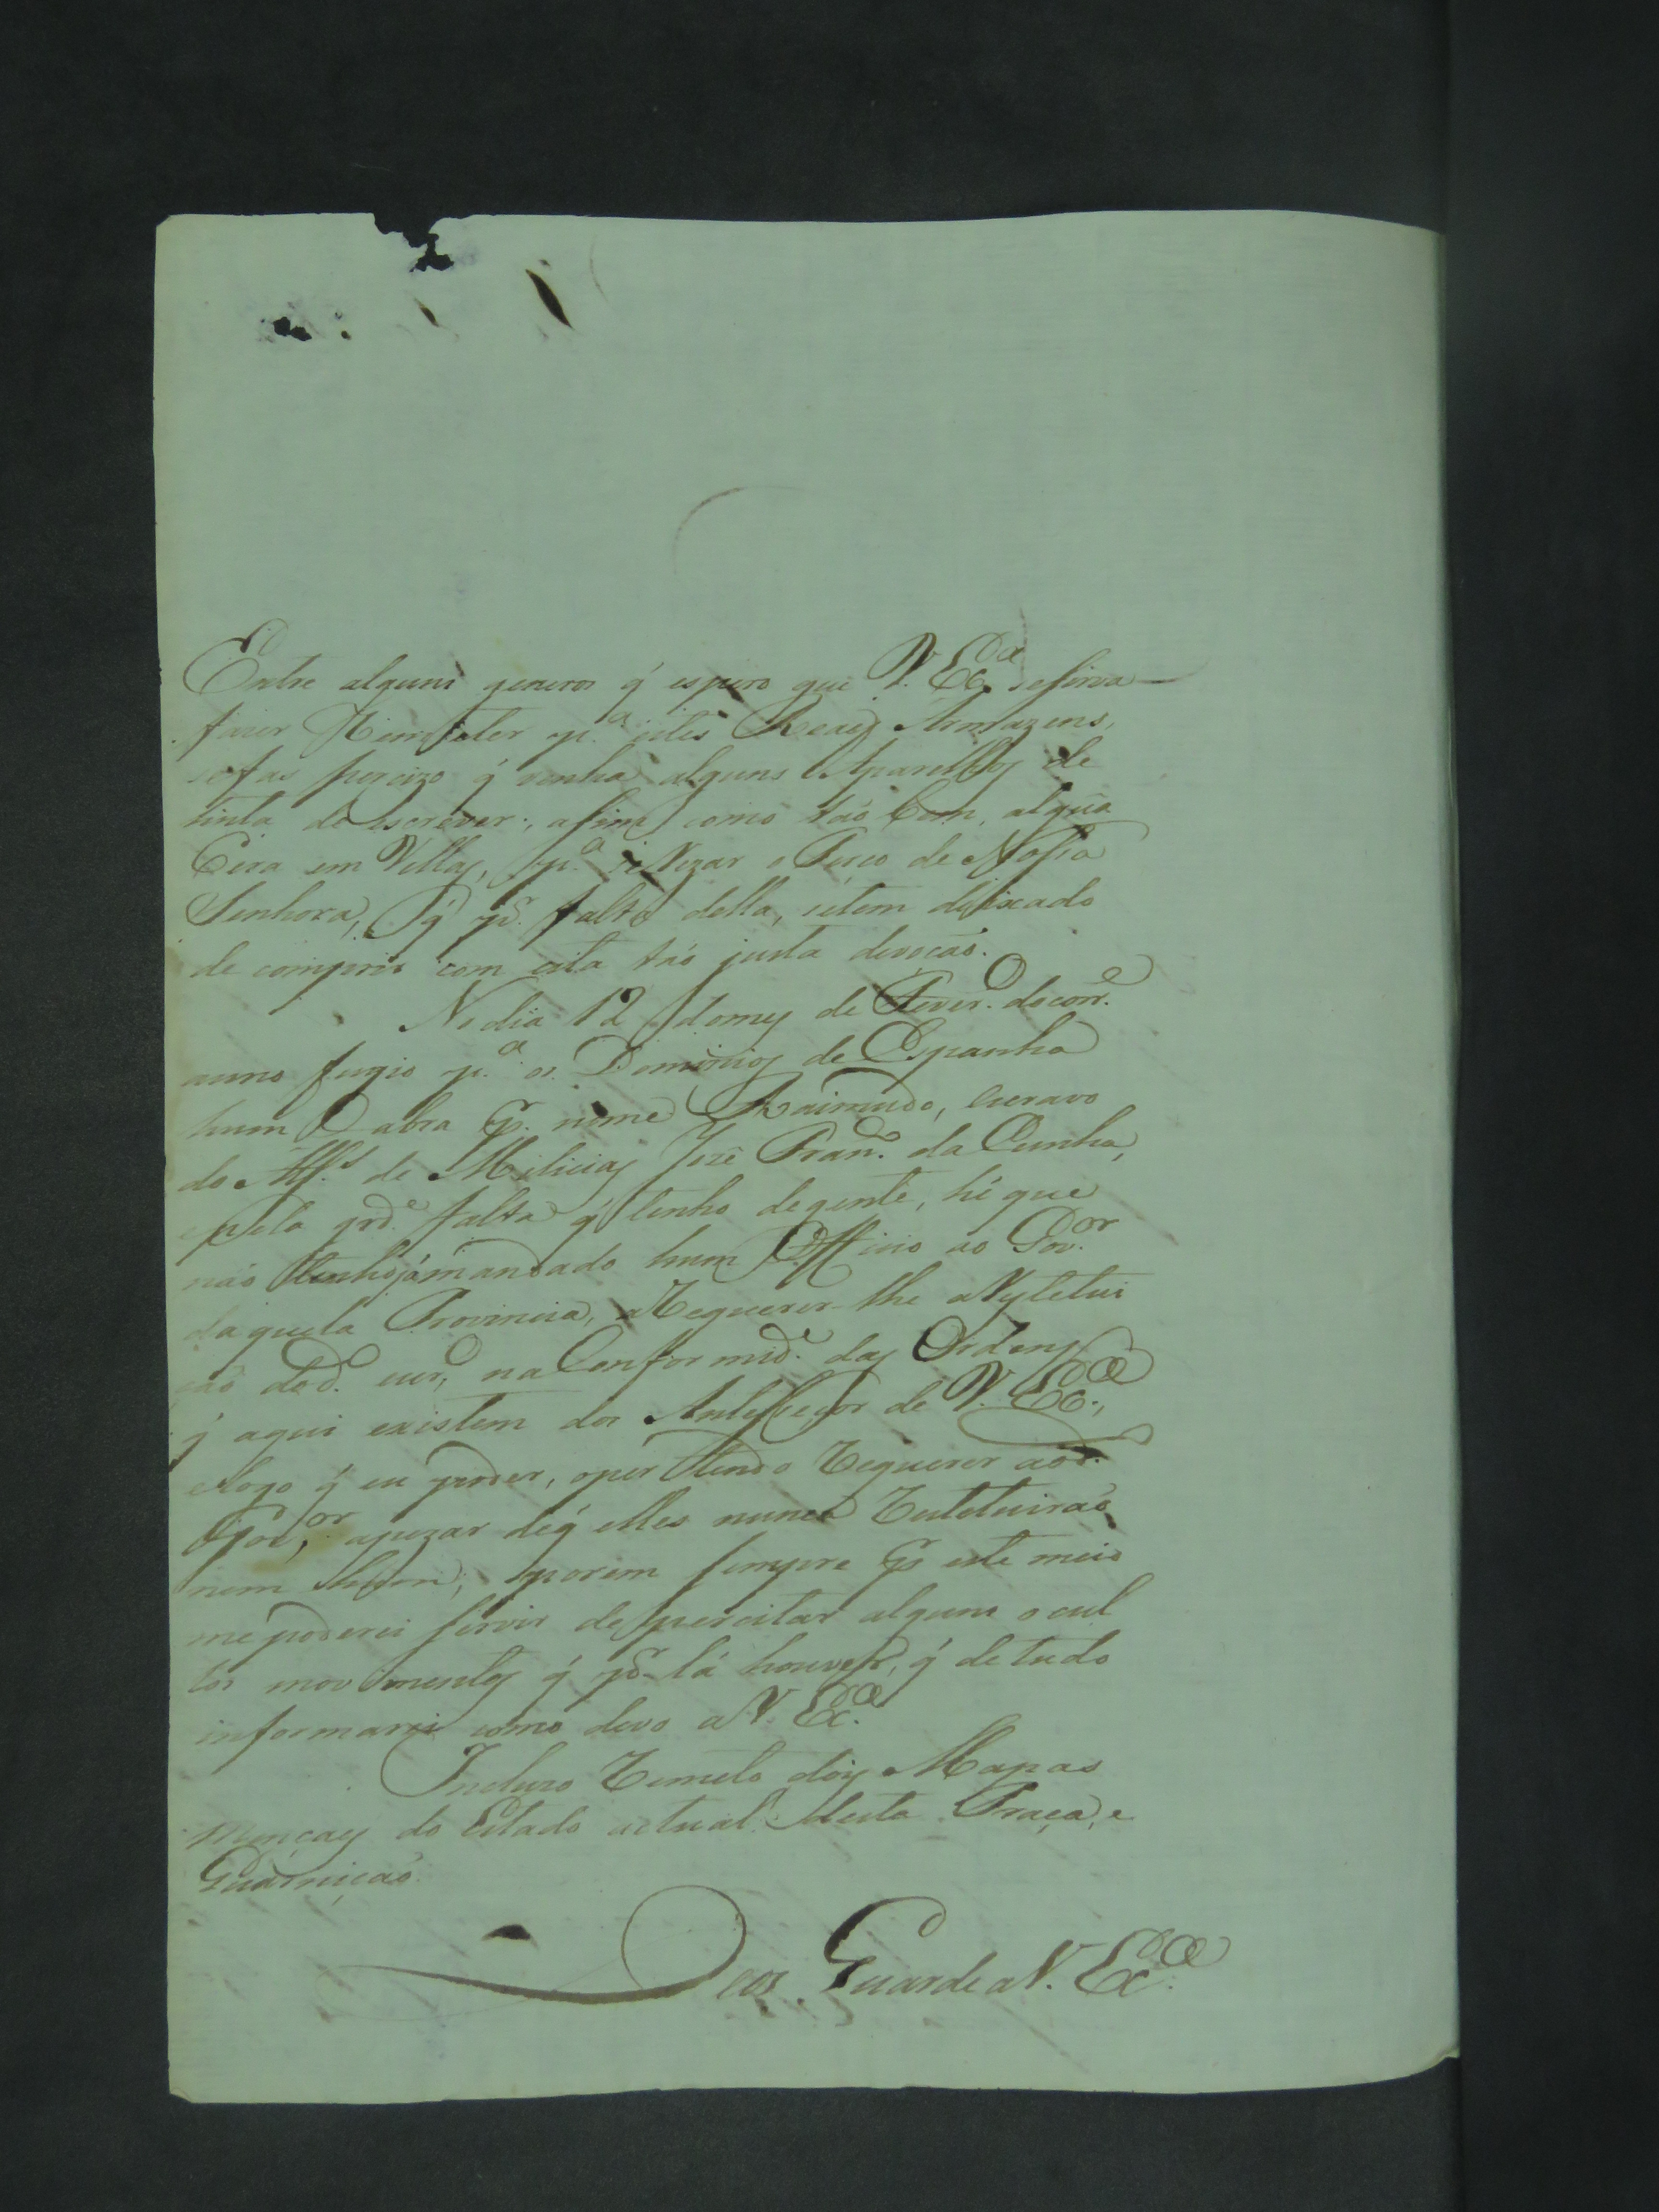 Entre alguns generos q̃ espero que V. Ex.ᶜⁱᵃ se sirva
fazer Remeter p.ª estes Reaes Armazens,
se fas percizo q̃ venha alguns Aparelhos de
tinta de escrever, asim como tão bem, algũa
Cera em Vellas, p.ª se Rezar o Terço de Nossa
Senhora, q̃ p.ʳ falta della, setem deixado
de comprir com esta tão justa devoção.
No dia 12 do mes de Fever.º do corr.ᵉ
anno fugio p.ª os Dominios de Espanha
hum Cabra p.ʳ nome Raimundo, escravo
do Alf.ˢ de Milicias Jozé Fran.ᶜᵒ da Cunha,
e pela grd.ᵉ falta q̃ tenho de gente, hé que
não tenho já mandado hum Officio ao Gov.ᵒʳ
daquela Provincia, a Requerer-lhe a Restetui
ção do d.º escr.º, na Conformid.ᵉ das Ordens
q̃ aqui existem dos Antessesor de V. Ex.ᶜⁱᵃ,
e logo q̃ eu poder, o pertendo Requerer ao d.º
Gov.ᵒʳ, apezar de q̃ elles nunca Restetuirão
nem hum; porem sempre p.ʳ este meio
me poderei servir de percitar alguns ocul
tos movimentos q̃ p.ʳ lá houver, q̃ de tudo
informarei como devo a V. Ex.ª
Incluzo Remeto dois Mapas
Mençaes do Estado actual desta Praça, e
Guarnição.
Deos Guarde a V. Ex.ᶜⁱᵃ